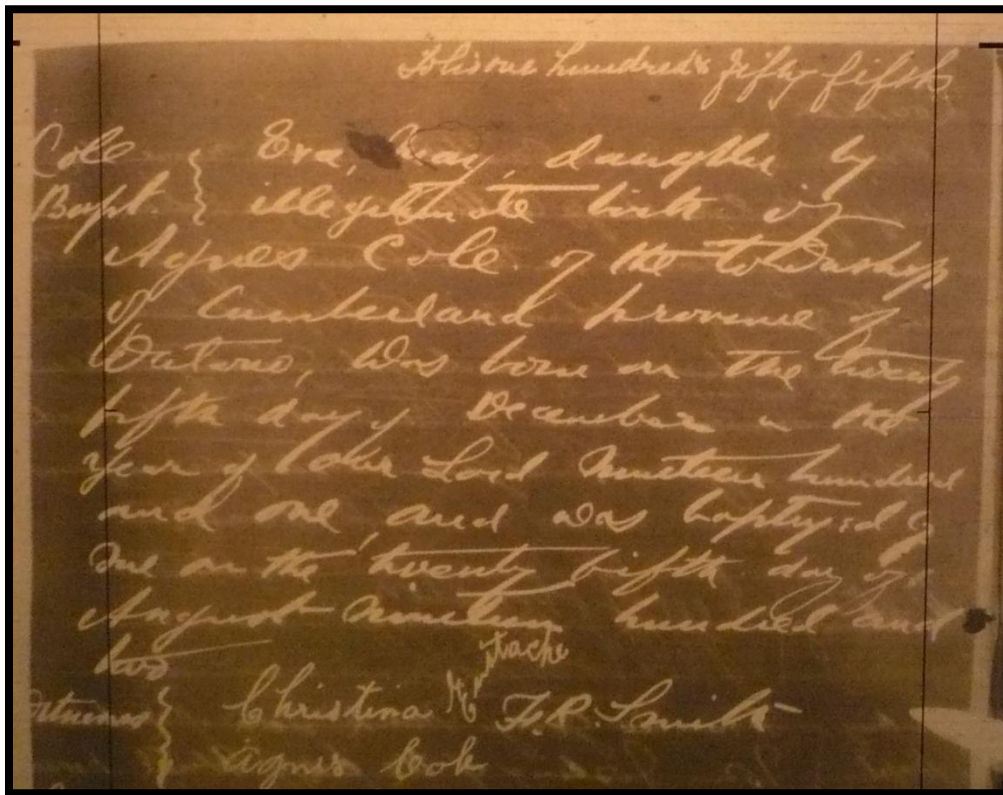 Folio one hundred & fifty fifth
Cole Eva, May, daughter by
Bapt. illegitimate birth of
Agnes Cole of the township
of Cumberland province of
Ontario, was born on the twenty
fifth day of December in the
year of our Lord Nineteen hundred
and one, and was baptized by
me on the twenty fifth day of
August nineteen hundred and
two
Witnesses Christina Eustache F.R. Smith
Agnes Cole